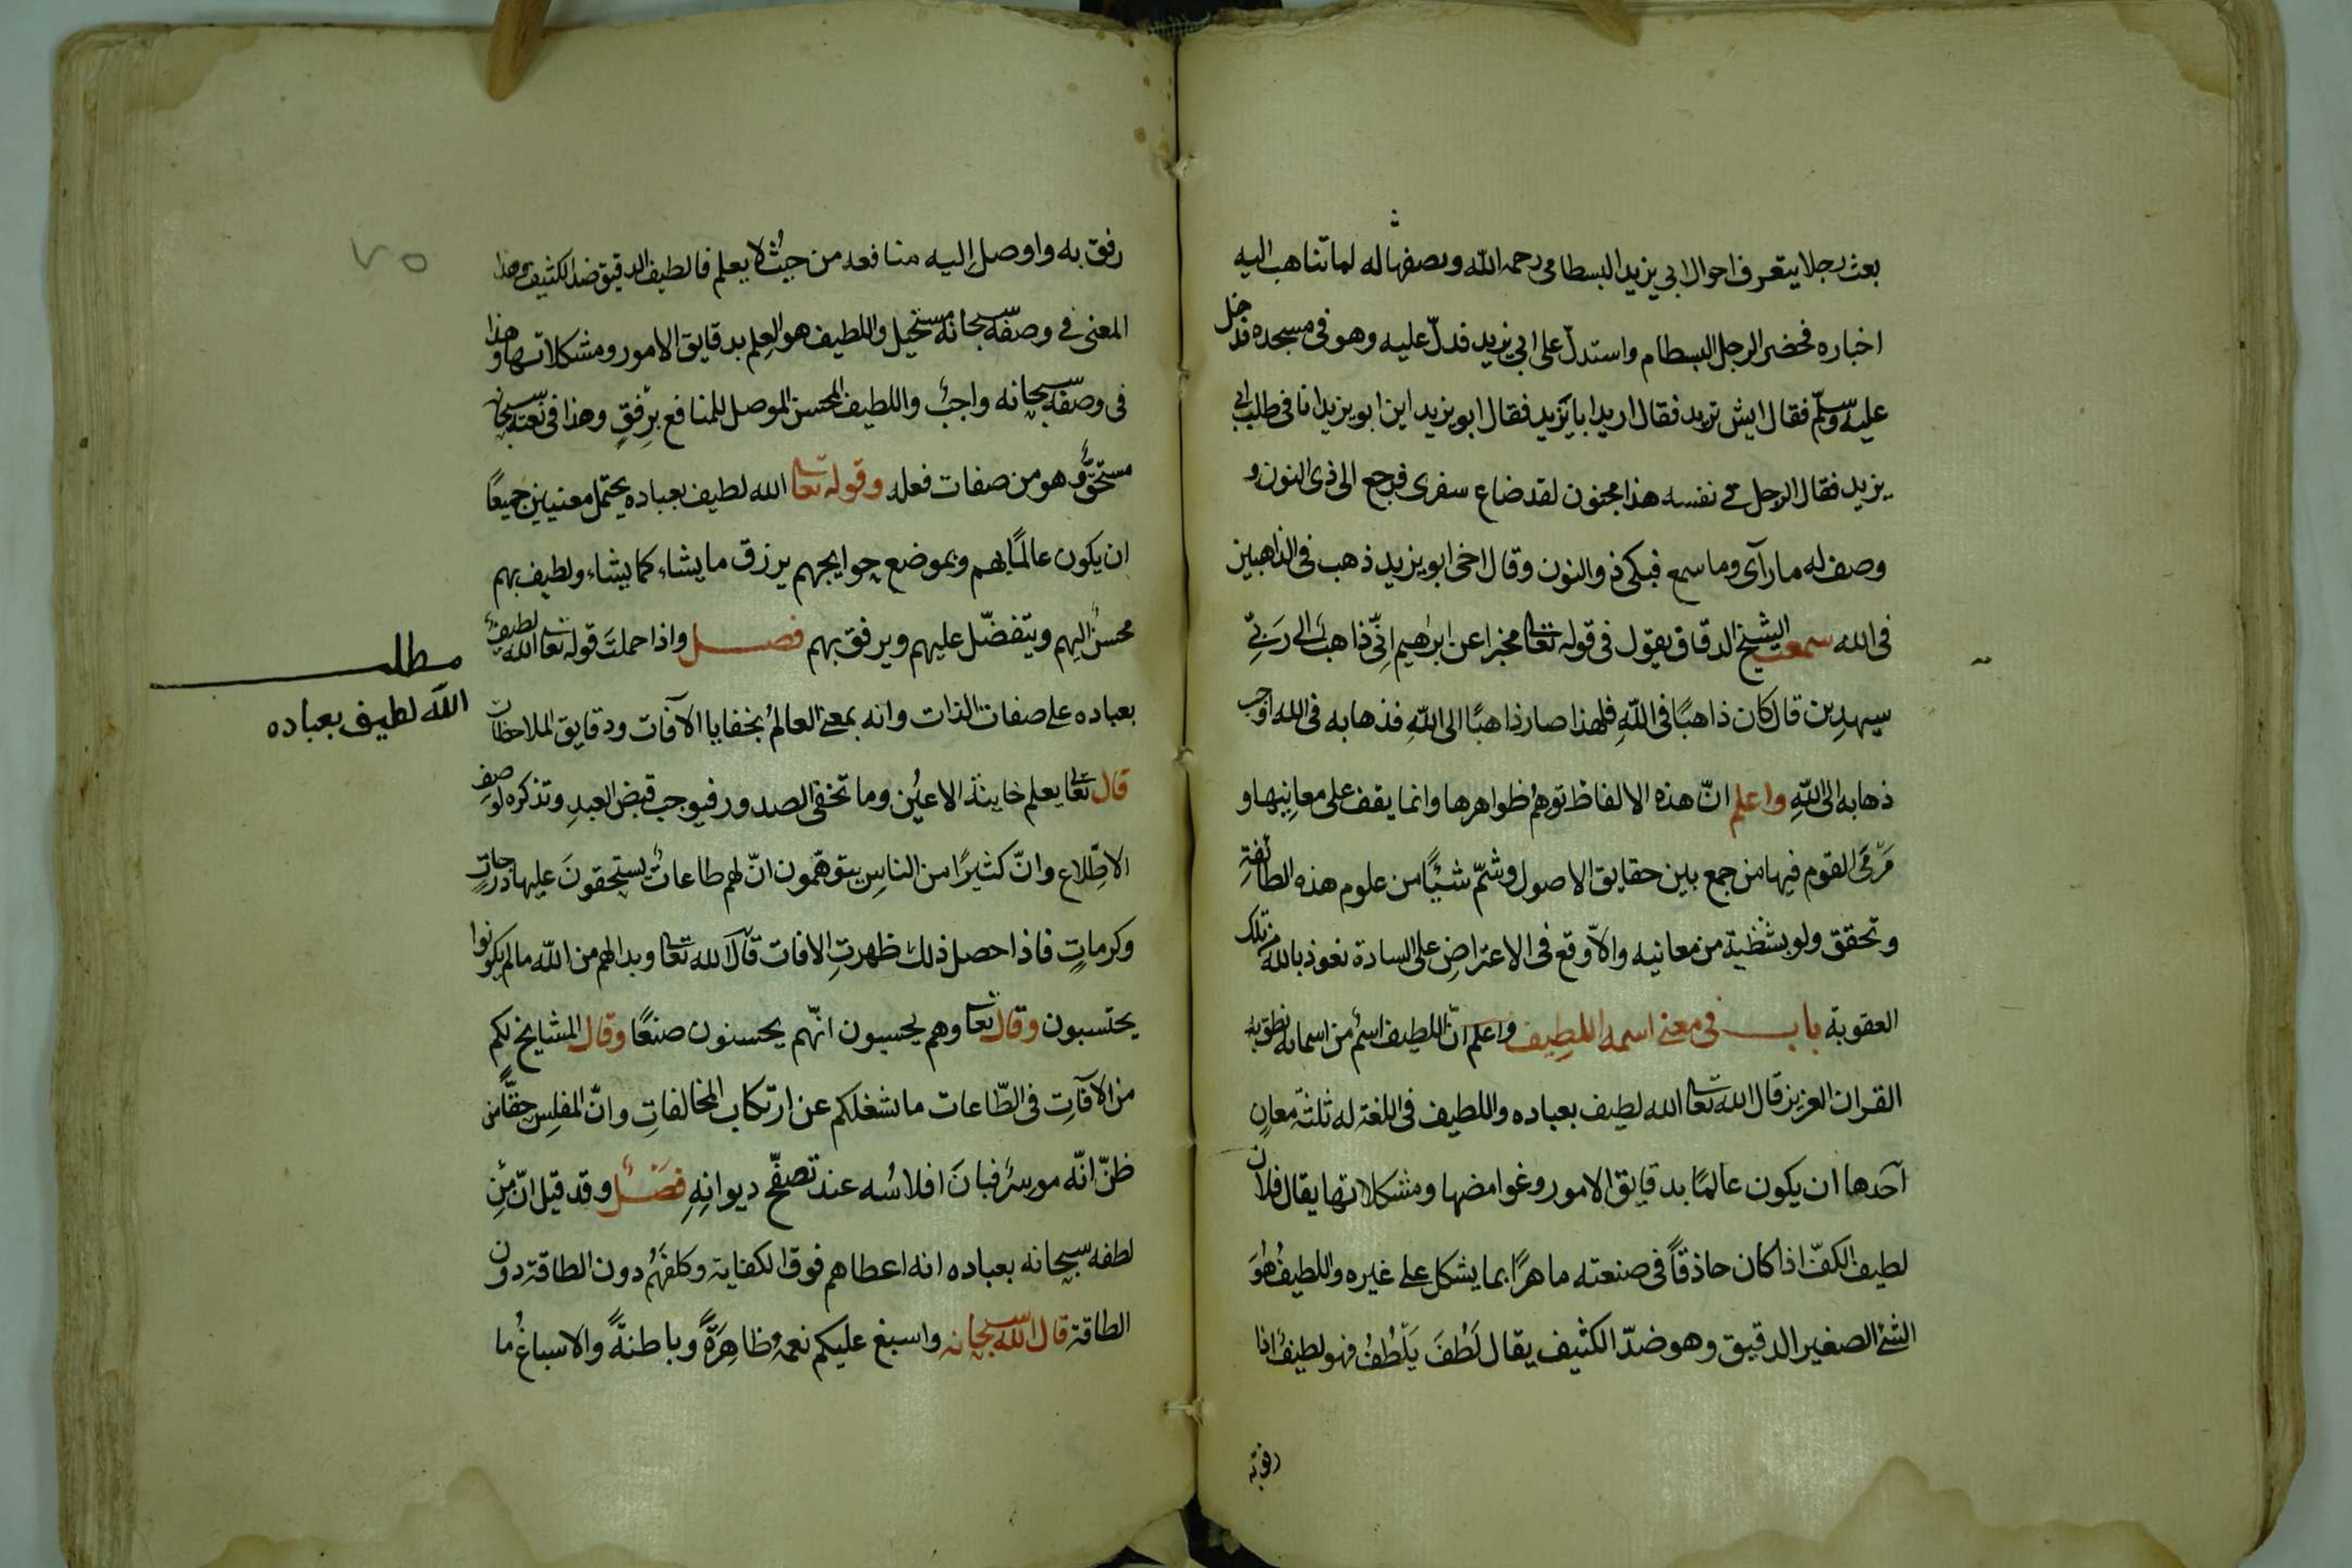 بعث رجلا يتعرف احوال ابي يزيد البسطامى رحمه الله ويصفها له لما تناهب اليه
اخباره فحضر الرجل البسطام واستدلّ على ابي يزيد فدلّ عليه وهو فى مسجده فدخل
عليه وسلّم فقال ايش تريد فقال اريد ابا يَزيد فقال ابو يزيد اين ابو يزيد انا فى طلب ابي
يزيد فقال الرجل في نفسه هذا مجنون لقد ضاع سفرى فرجع الى ذى النون و
وصف له ما رآى وما سمع فبكى ذو النون وقال اخى ابو يزيد ذهب فى الذاهبين
فى الله سمعت الشيخ الدقاق يقول فى قوله تعا مخبرا عن ابرهيم انّى ذاهبٌ الى رَبّي
سيهدِين قال كان ذاهبًا فى اللّهِ فلهذا صار ذاهبًا الى اللّهِ فذهابه فى الله اوجب
ذهابه الى اللّهِ واعلم انّ هذه الالفاظ توهمُ ظواهرها وانما يقف على معانِيها و
مَرْمَى القوم فيها من جمع بين حقايق الاصول وشمّ شيئًا من علوم هذه الطائفةِ
وتحقق ولو بشظية من معانيه والاّ وقع فى الاعتراضِ على السادة نعوذ بالله من تلك
العقوبة باب فى معنى اسمه اللطِيف واعلم انّ اللطيف اسمٌ من اسمائه نطق به
القران العزيز قال الله تعا الله لطيف بعباده واللطيف فى اللغة له ثلثة معانٍ
آحَدها ان يكون عالمًا بدقايق الامور وغوامضها ومشكلاتها يقال فلان
لطيف الكفّ اذا كان حاذقاً فى صنعته ماهرًا بما يشكل على غيره واللطيفُ هُوَ
الشئ الصغير الدقيق وهو ضدّ الكثيف يقال لَطُفَ يَلْطُفُ فهو لطيفٌ اذا
رفق به
٧٥
رفق به واوصل اليه منافعه من حيثُ لا يعلم فاللطيف الدقيق ضد الكثيف وهذا
المعنى في وصفه سبحانه مستحيل واللطيف هو العِلم بدقايق الامور ومشكلاتها وهذا
فى وصفه سبحانه واجبٌ واللطيف المحسن الموصل للمنافع بِرِفقٍ وهذا فى نعته سبحانه
مستحقٌّ وهو من صفات فعله وقوله تعا الله لطيف بعباده يحتمل معنيين جميعًا
ان يكون عالمًا بهم وبموضع حوايجهم يرزق ما يشاء كما يشاء ولطيف بهم
محسنٌ اليهم ويتفضّل عليهم ويرفق بهم فصل واذا حملتَ قوله تعا الله لطيفٌ
بعباده على صفات الذات وانه بمعنى العالمُ بخفايا الآفات ودقايق الملاحظات
قال تعا يعلم خاينة الاعيُن وما تخفى الصدور فيوجب قبض العبدِ وتذكره لوصفِ
الاطّلاع وانّ كثيرًا من الناسِ يتوهّمون انّ لهم طاعاتٌ يستحقونَ عليها درجاتٍ
وكرماتٍ فاذا حصل ذلك ظهرتِ الافات قال الله تعا وبدا لهم من اللّه ما لم يكونوا
يحتسبون وقال تعا وهم يحسبون انّهم يحسنون صنعًا وقال المشايخ لكم
من الآفاتِ فى الطّاعات ما شغلكم عن ارتكاب المخالفاتِ وانّ المفلِس حقًّا من
ظنّ انّه موسرٌ فبانَ افلاسُه عند تصفّح ديوانِهِ فصلٌ وقد قيل انّ مِن
لطفه سبحانه بعباده انه اعطاهم فوق الكفاية وكلفَهُم دون الطاقة دون
الطاقة قال الله سبحانه واسبغ عليكم نعمه ظاهِرَةً وباطنةً والاسباغُ ما
مطلب
الله لطيف بعباده